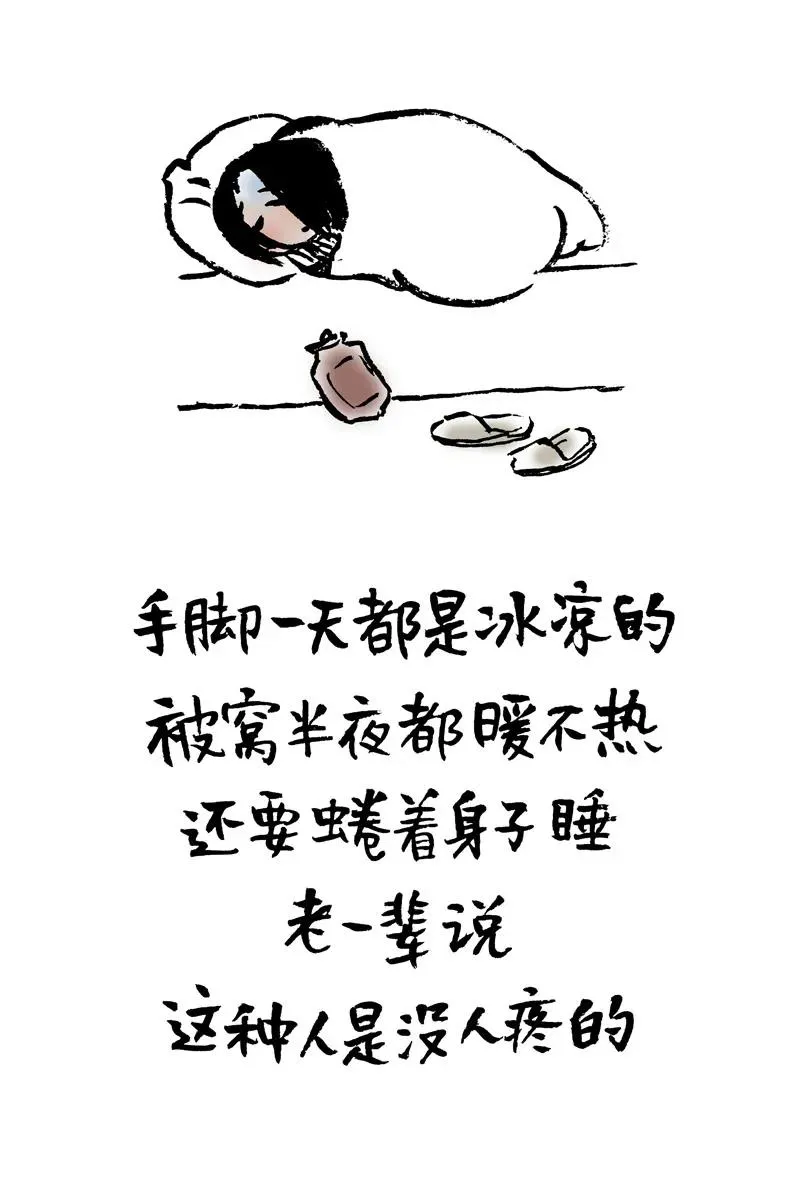 手脚一天都是冰凉的
被窝半夜都暖不热
还要蜷着身子睡
老一辈说
这种人是没人疼的